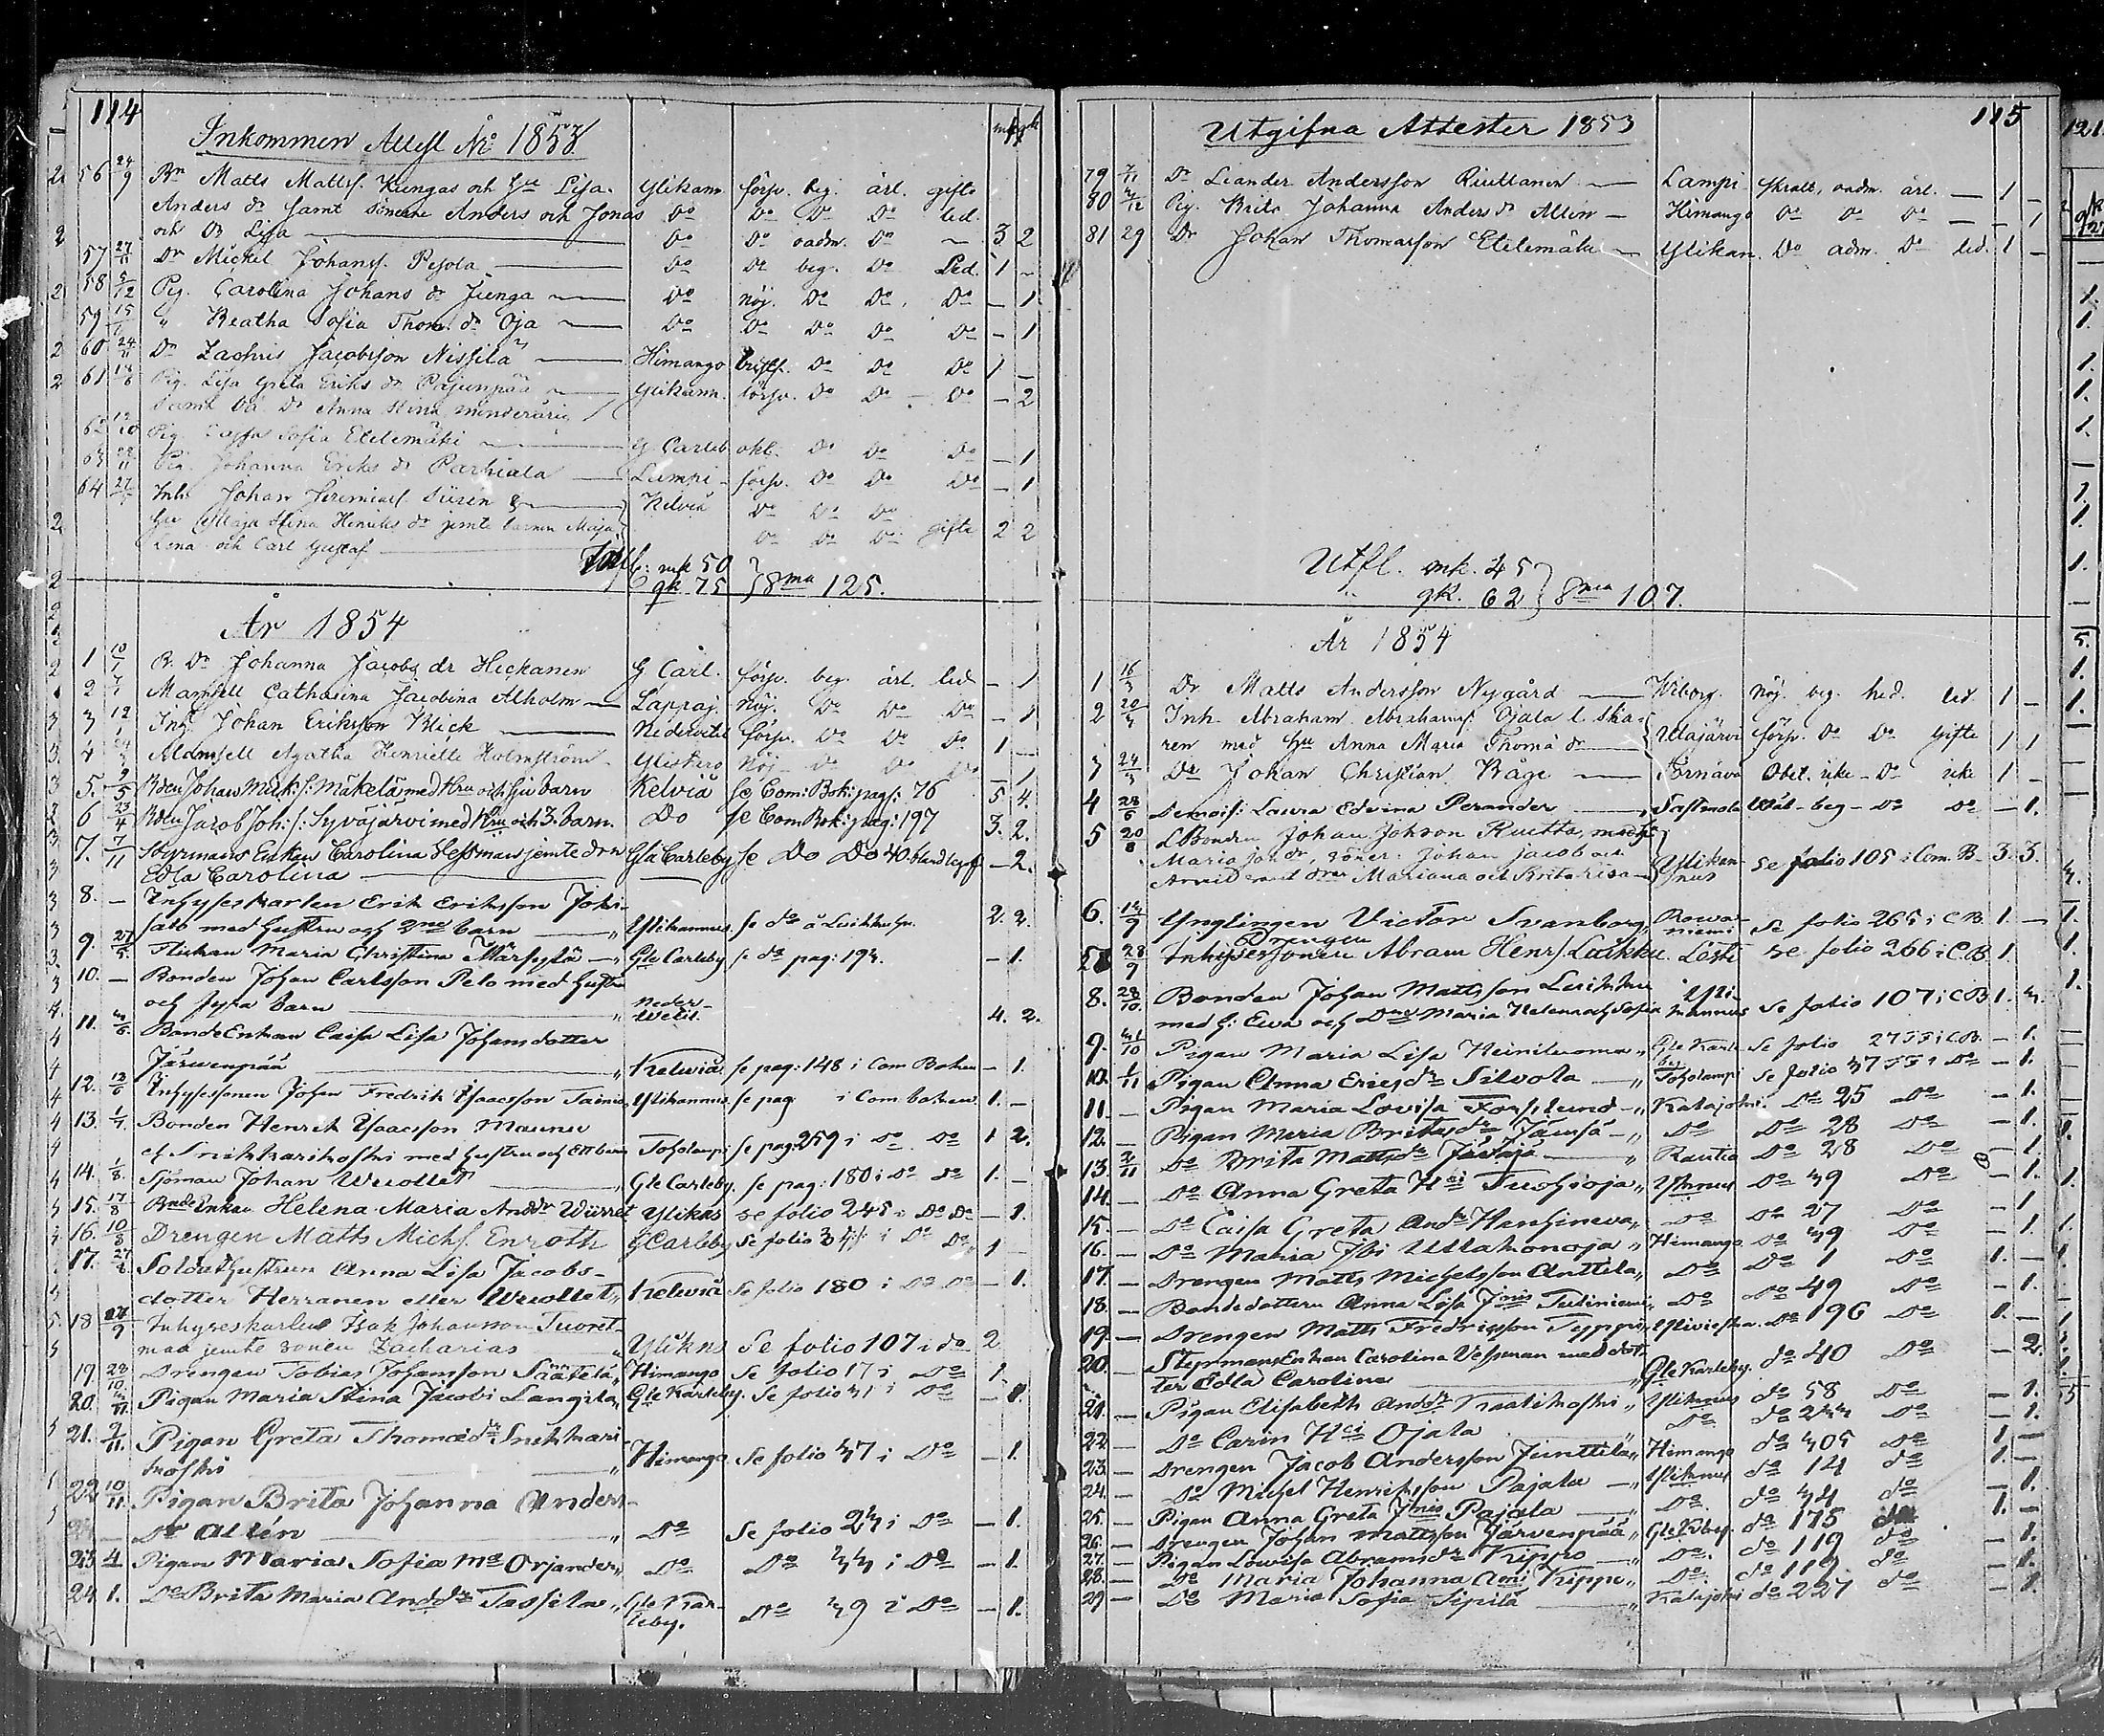 114
Inkommen Attest År 1853
mk qk
56 24/9 Bn Matts Matts. Kungas och Hu Lisa Ylikann. försv. beg. ärl. gifta
Anders dr samt sönerne Anders och Jonas Do Do Do Do led.
och Dr Lisa Do Do oadm. Do 3 2
57 27/11 Dr Michel Johans. Pesola Do Do beg. Do Led. 1 -
58 5/12 Pig. Carolina Johans dr Junga Do nöj. Do Do Do - 1
59 " Beatha Sofia Thom. dr Oja Do Do Do Do Do - 1
60 24/11 Dr Zachris Jacobsson Nissilä Himango Do Do Do 1 -
61 Pig. Lisa Greta Eriks dr Pajunpää Ylikann. försv. Do Do Do - 2
samt Dr Anna Stina minderårig
62 Pig. Cajsa Sofia Etelemäki G Carleb okl. Do Do Do - 1
63 Pig. Johanna Eriks dr Parhiala Lampi försv. Do Do Do - 1
64 27 Inh. Johan Jeremias. Siiren & Kelviå Do Do Do
Hu Maja Stina Henriks dr jemte barnen Maja Do Do Do gifta 2 2
Lena och Carl Gustaf
Infl: mk 50
qk 75 } Sma 125.
År 1854
1 10/1 B. Dr Johanna Jacobs dr Hickanen G Carl. försv. beg. ärl. led - 1
2 7/1 Mamsell Catharina Jacobina Alholm Lappaj. Nöj. Do Do Do - 1
3 12/1 Inh. Johan Eriksson Klick Nedervetil försv. Do Do Do 1 -
4 Mamsell Agatha Henriette Holmström Ylistaro Nöj Do Do Do - 1
5. 2/5 Bden Johan Mick:s: Mäkelä med Hru och sju barn Kelviå se Com: Bok: pag: 76 5 4.
6 23/4 Bden Jacob Joh:s: Syväjärvi med Hru och 3. barn. Do se Com Bok: pag: 197 3. 2.
7. 7/11 Styrmans Enkan Carolina Vessman jemte drn Gla Carleby se Do Do 40. - 2.
Edla Carolina
8. - Inhysseskarlen Erik Eriksson Joki-
salo med hustru och 2ne barn Ylikannus. se do å 2. 2.
9. 27/5 Flickan Maria Christina Märsylä Gle Carleby se do pag: 194. - 1.
10. - Bonden Johan Carlsson Pelo med hustru
och fyra barn Neder-vetil. 4. 2.
11. 4/6 BondeEnkan Caisa Lisa Johansdotter
Järwenpää Kelwiå se pag: 148 i Com Boken - 1.
12. 13/6 Inhysessonen Johan Fredrik Isaacsson Tainio Ylikannus. se pag i Com: boken 1. -
13. 1/7 Bonden Henrik Isaacsson Maunu
ell Snikkarikoski med hustru och Ett barn Toholampi se pag: 259 i Do Do 1 2.
14. 1/8 Sjöman Johan Wuollet Gle Carleby. se pag: 180 i Do do 1. -
15. 17/8 Bnde Enkan Helena Maria Anddr Wiirret Ylikns se folio 245 i Do Do - 1.
16. 10/8 Drengen Matts Michs. Enroth G Carleby se folio 344 i Do Do, 1
17. 27/8 Soldathustrun Anna Lisa Jacobs-
dotter Herranen eller Wuollet Kelwiå Se folio 180 i Do Do - 1.
18 27/9 Inhyseskarlen Isak Johansson Tuoret-
maa jemte sonen Zacharias Ylikns Se folio 107 i do 2
19. 28/10 Drengen Tobias Johansson Säätelä Himango Se folio 17 i Do 1.
20. 4/11 Pigan Maria Stina Jacobs Langila Gle Karleby. Se folio 41 i Do - 1.
21. 9/11. Pigan Greta Thomædr Snikkari-
koski Himango Se folio 47 i Do - 1.
22 10/11. Pigan Brita Johanna Anders-
Dr Allén Do Se folio 24 i Do - 1.
23 4 Pigan Maria Sofia Ms Orjander Do Do 44 i Do - 1.
24 1. Do Brita Maria Anddr Tassila Gle Kar-leby. Do 49 i Do - 1.
115
Utgifna Attester 1853
79 7/11 Dr Leander Andersson Riuttanen Lampi skralt, oadm. ärl. 1 -
80 4/12 Pig. Brita Johanna Anders dr Allén Himango Do Do Do - 1
81 29 Dr Johan Thomasson Etelemäki Ylikan. Do adm. Do led. 1 -
Utfl. mk. 45
" qk. 62 } Sma 107.
År 1854
1 16/3 Dr Matts Andersson Nygård Wiborg. nöj. beg. hed. led. 1 -
2 20/3 Inh. Abraham Abrahams. Ojala l. Ska-
ren med Hu Anna Maria Thomä dr Utajärvi försv. Do Do Gifta 1 1
3 24/3 Dr Johan Christian Båge Pörnävä Obet. icke Do icke 1 -
4 28/6 Demois: Laura Edvina Perander Sastmola Wäl- beg- Do Do - 1.
5 20/8 L Bonden Johan Johson Rutta, med H
Maria joh dr, söner: Johan Jacob och
Arvid med drar Mariana och Brita Lisa Ylikan-nus se folio 105 i Com. B. 3. 3.
6. 14/9 Ynglingen Victor Svanborg Rowa-niemi se folio 265 i C B. 1. -
Drengen
7 28/9 Inhysessonen Abram Henrs. Laikku. Lesti se folio 266 i C.B 1.
8. 28/10. Bonden Johan Mattsson Luikku
med h: Ewa och Drar Maria Helena och Sofia Ylikannus se folio 107 i C B 1. 4.
9. 31/10 Pigan Maria Lisa Heinikoma Gle Karleby se folio 27 i CB - 1.
10. 1/11 Pigan Anna Ericsdr Silvola Toholampi Se folio 37 i Do - 1.
11. - Pigan Maria Lovisa Forslund Kalajoki. Do 25 Do - 1.
12. - Pigan Maria Britasdr Jämsä Do Do 28 Do - 1.
13. 2/11 Do Brita Mattsdr Jäväjä Rautio Do 28 Do - 1.
14. - Do Anna Greta Hsi Tuohioja Yknus Do 49 Do - 1.
15. - Do Caisa Greta Anddr Hanhineva Do Do 27 Do - 1
16. - Do Maria Jsi Ullakonoja Himango Do 49 Do - 1.
17. - Drengen Matts Michelsson Anttila Do Do 1 Do 1. -
18. - Bondedottern Anna Lisa Jnis Tuliniemi Do Do 49 Do - 1.
19. - Drengen Matts Fredricsson Typpö Ylivieska. Do 196 Do 1. -
20. - StyrmansEnkan Carolina Vessman med dot-
ter Edla Carolina Gle Karleby. do 40 Do - 2.
21. - Pigan Elisabeth Anddr Kaalikoski Ylikanus do 58 Do - 1.
22 - Do Carin Hsi Ojala Do do 244 Do - 1.
23. - Drengen Jacob Andersson Junttila Himango do 405 Do 1 -
24. - Do Michel Henricsson Pajala Ylikanus do 14 do 1. -
25. - Pigan Anna Greta Jnis Pajala Do. do 44 do - 1.
26. - Drengen Johan Mattsson Järvenpää Gle Kby. do 175 do 1. -
27. - Pigan Lowisa Abramsdr Kippo Do. do 119 do - 1.
28. - Do Maria Johanna Ami Kippo Do. do 119 do - 1.
29 - Do Maria Sofia Sipilä Kalajoki do 227 do - 1.